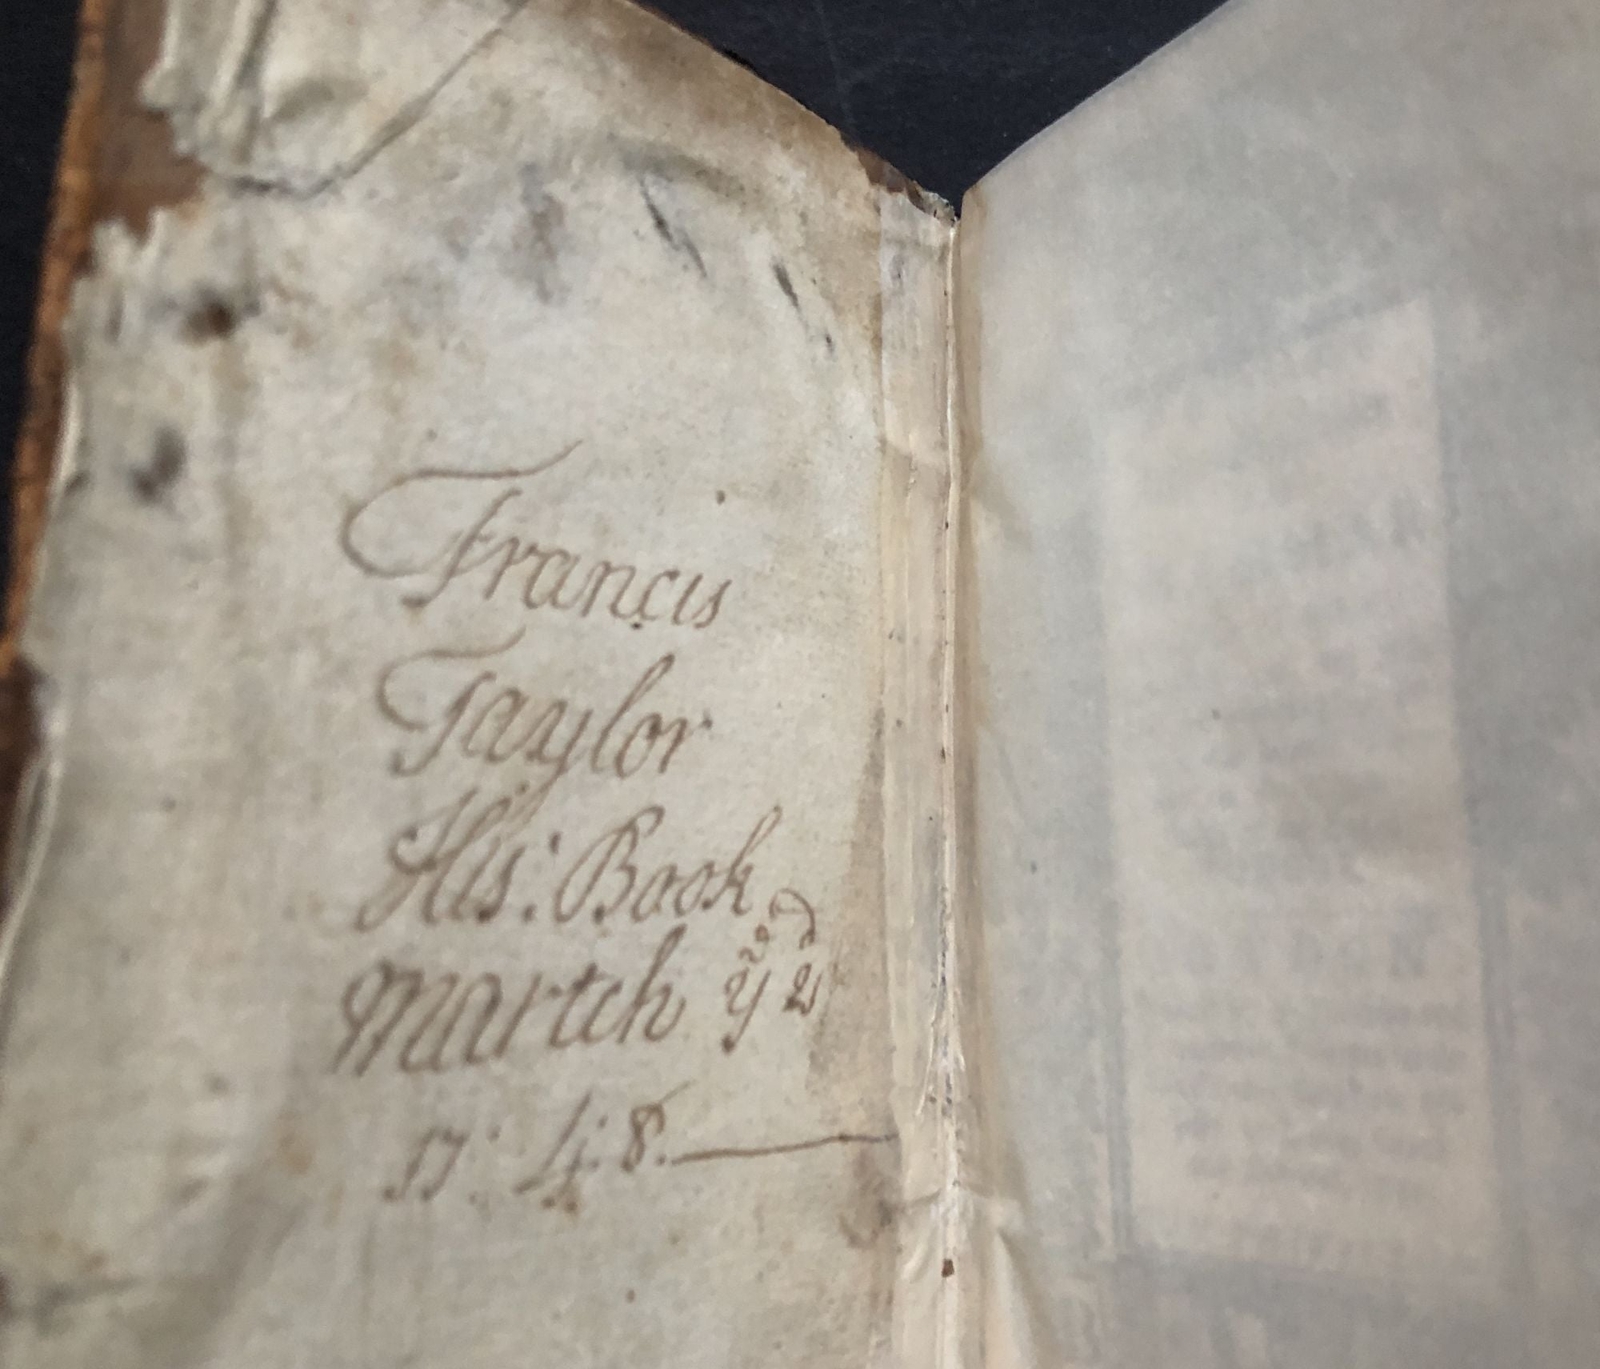 Francis
Taylor
His: Book
martch yᵉ 2ᵈ
17: 48.